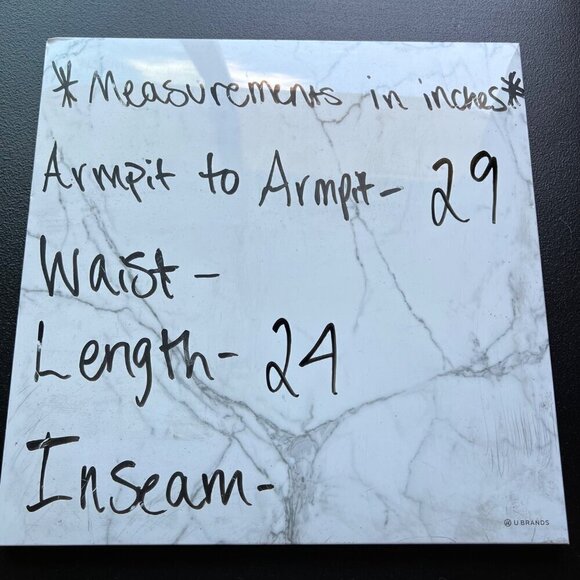 *Measurements in inches*
Armpit to Armpit- 29
Waist -
Length- 24
Inseam-
U BRANDS